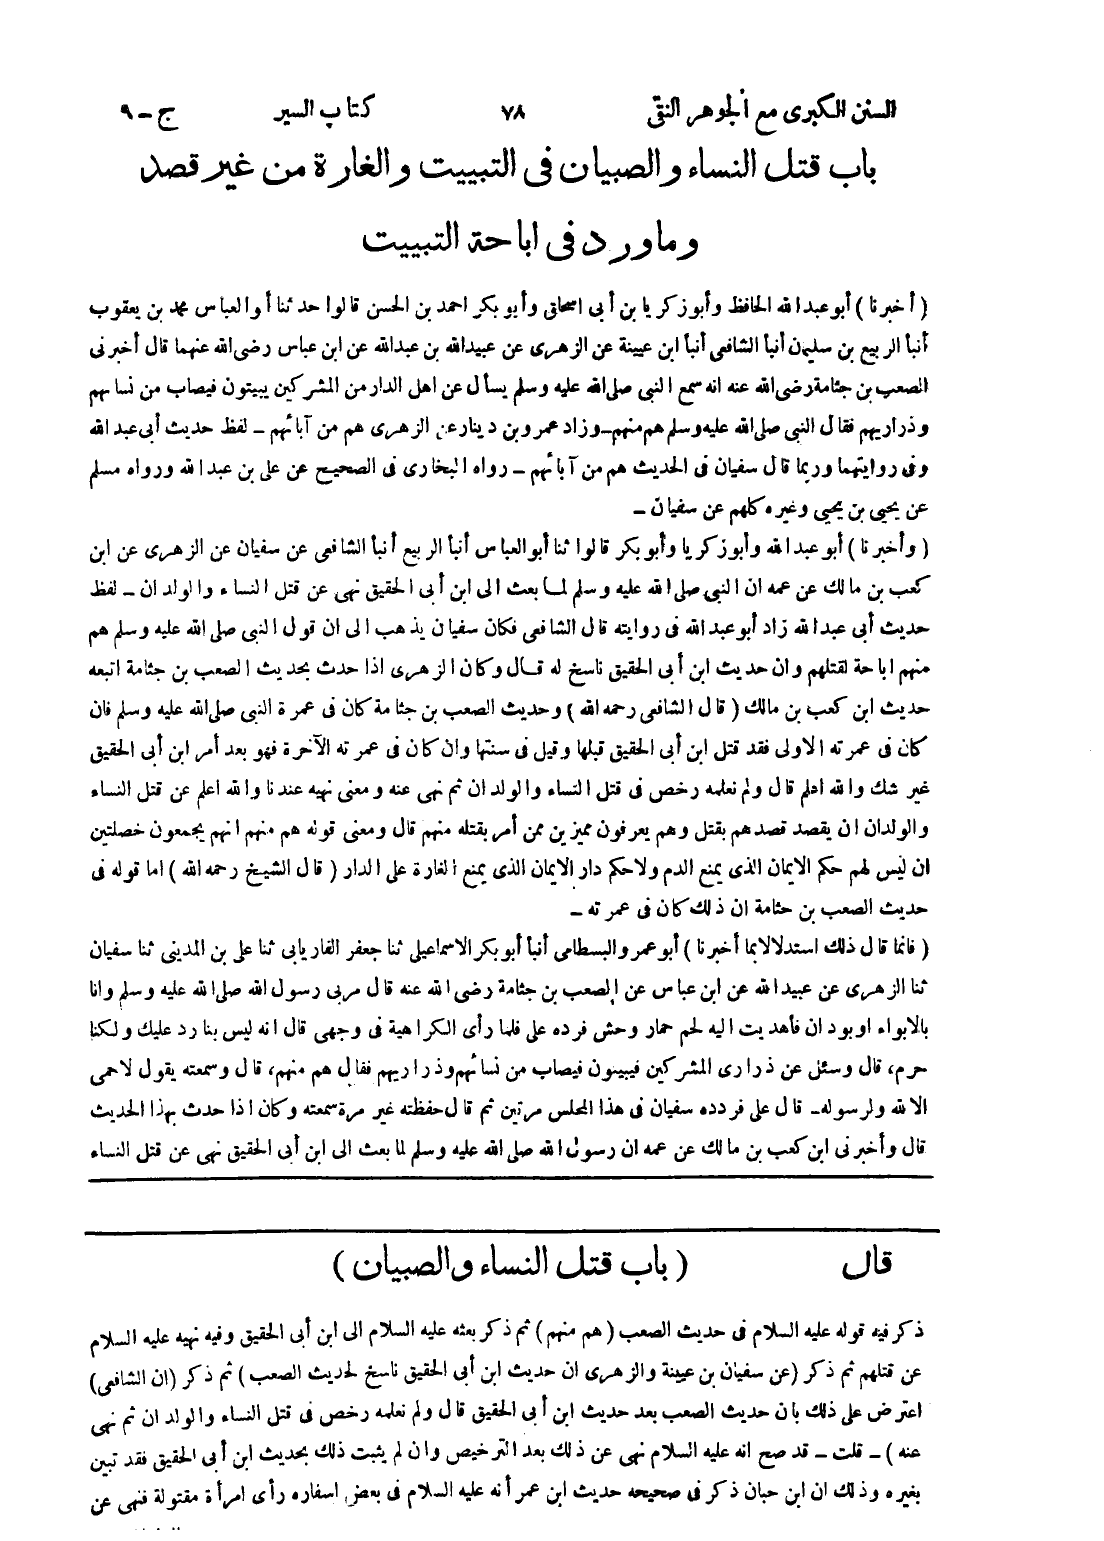 السنن الكبرى مع الجوهر النقي ٧٨ كتاب السير ج - ٩
باب قتل النساء والصبيان فى التبييت والغارة من غير قصد
وما ورد فى اباحة التبييت
( أخبرنا ) أبو عبد الله الحافظ وأبو زكريا بن أبى اسحاق وأبو بكر احمد بن الحسن قالوا حدثنا أبو العباس محمد بن يعقوب
أنبأ الربيع بن سليمان أنبأ الشافعى أنبأ ابن عيينة عن الزهرى عن عبيدالله بن عبدالله عن ابن عباس رضى الله عنهما قال أخبرنى
الصعب بن جثامة رضى الله عنه انه سمع النبى صلى الله عليه وسلم يسأل عن اهل الدار من المشركين يبيتون فيصاب من نسائهم
وذراريهم فقال النبى صلى الله عليه وسلم هم منهم - وزاد عمرو بن دينار عن الزهرى هم من آبائهم - لفظ حديث أبى عبد الله
وفى روايتهما وربما قال سفيان فى الحديث هم من آبائهم - رواه البخارى فى الصحيح عن على بن عبد الله ورواه مسلم
عن يحيى بن يحيى وغيره كلهم عن سفيان -
( وأخبرنا ) أبو عبد الله وأبو زكريا وأبو بكر قالوا ثنا أبو العباس أنبأ الربيع أنبأ الشافعى عن سفيان عن الزهرى عن ابن
كعب بن مالك عن عمه ان النبى صلى الله عليه وسلم لما بعث الى ابن أبى الحقيق نهى عن قتل النساء والولدان - لفظ
حديث أبى عبد الله زاد أبو عبد الله فى روايته قال الشافعى فكان سفيان يذهب الى ان قول النبى صلى الله عليه وسلم هم
منهم اباحة لقتلهم وان حديث ابن أبى الحقيق ناسخ له قال وكان الزهرى اذا حدث بحديث الصعب بن جثامة اتبعه
حديث ابن كعب بن مالك ( قال الشافعى رحمه الله ) وحديث الصعب بن جثامة كان فى عمرة النبى صلى الله عليه وسلم فان
كان فى عمرته الاولى فقد قتل ابن أبى الحقيق قبلها وقيل فى سنتها وان كان فى عمرته الآخرة فهو بعد أمر ابن أبى الحقيق
غير شك والله اعلم قال ولم نعلمه رخص فى قتل النساء والولدان ثم نهى عنه ومعنى نهيه عندنا والله اعلم عن قتل النساء
والولدان ان يقصد قصدهم بقتل وهم يعرفون مميزين ممن أمر بقتله منهم قال ومعنى قوله هم منهم انهم يجمعون خصلتين
ان ليس لهم حكم الايمان الذى يمنع الدم ولا حكم دار الايمان الذى يمنع الغارة على الدار ( قال الشيخ رحمه الله ) اما قوله فى
حديث الصعب بن جثامة ان ذلك كان فى عمرته -
( فانما قال ذلك استدلالا بما أخبرنا ) أبو عمرو البسطامى أنبأ أبو بكر الاسماعيلى ثنا جعفر الفاريابى ثنا على بن المدينى ثنا سفيان
ثنا الزهرى عن عبيد الله عن ابن عباس عن الصعب بن جثامة رضى الله عنه قال مر بى رسول الله صلى الله عليه وسلم وانا
بالابواء او بودان فأهديت اليه لحم حمار وحش فرده على فلما رأى الكراهية فى وجهى قال انه ليس بنا رد عليك ولكنا
حرم، قال وسئل عن ذرارى المشركين فيبيتون فيصاب من نسائهم وذراريهم فقال هم منهم، قال وسمعته يقول لا حمى
الا لله ولرسوله - قال على فردده سفيان فى هذا المجلس مرتين ثم قال حفظته غير مرة سمعته وكان اذا حدث بهذا الحديث
قال وأخبرنى ابن كعب بن مالك عن عمه ان رسول الله صلى الله عليه وسلم لما بعث الى ابن أبى الحقيق نهى عن قتل النساء
قال ( باب قتل النساء والصبيان )
ذكر فيه قوله عليه السلام فى حديث الصعب ( هم منهم ) ثم ذكر بعثه عليه السلام الى ابن أبى الحقيق وفيه نهيه عليه السلام
عن قتلهم ثم ذكر ( عن سفيان بن عيينة والزهرى ان حديث ابن أبى الحقيق ناسخ لحديث الصعب ) ثم ذكر ( ان الشافعى )
اعترض على ذلك بان حديث الصعب بعد حديث ابن أبى الحقيق قال ولم نعلمه رخص فى قتل النساء والولدان ثم نهى
عنه ) - قلت - قد صح انه عليه السلام نهى عن ذلك بعد الترخيص وان لم يثبت ذلك بحديث ابن أبى الحقيق فقد تبين
بغيره وذلك ان ابن حبان ذكر فى صحيحه حديث ابن عمر أنه عليه السلام فى بعض اسفاره رأى امرأة مقتولة فنهى عن